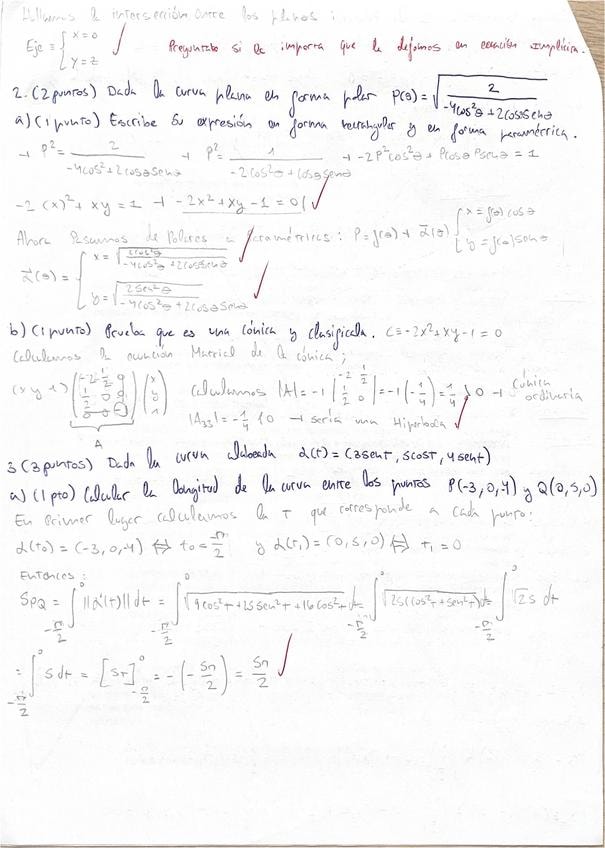 Hallamos la intersección entre los planos :
Eje ≡ { x=0
y=z
Preguntale si le importa que la dejemos en ecuación implícita.
2. (2 puntos) Dada la curva plana en forma polar P(θ) = √(2 / (-4cos²θ + 2cosθsenθ))
a) (1 punto) Escribe su expresión en forma rectangular y en forma paramétrica.
→ P² = 2 / (-4cos²θ + 2cosθsenθ) → P² = 1 / (-2cos²θ + cosθsenθ) → -2P²cos²θ + Pcosθ Psenθ = 1
-2(x)² + xy = 1 → -2x² + xy - 1 = 0
Ahora Pasamos de Polares a Paramétricas : P = f(θ) → α(θ) { x = f(θ) cosθ
y = f(θ) senθ
α(θ) = { x = √(2cos²θ / (-4cos²θ + 2cosθsenθ))
y = √(2sen²θ / (-4cos²θ + 2cosθsenθ))
b) (1 punto) Prueba que es una cónica y clasifícala. C ≡ -2x² + xy - 1 = 0
Calculamos la ecuación Matricial de la cónica ;
(x y 1) (-2 1/2 0
1/2 0 0
0 0 -1) (x
y
1)
A
Calculamos |A| = -1 |-2 1/2
1/2 0| = -1(-1/4) = 1/4 ≠ 0 → Cónica ordinaria
|A33| = -1/4 < 0 → sería una Hiperbola
3 (3 puntos) Dada la curva alabeada α(t) = (3sent, 5cost, 4sent)
a) (1 pto) Calcular la Longitud de la curva entre los puntos P(-3, 0, -4) y Q(0, 5, 0)
En primer lugar calculamos la t que corresponde a cada punto:
α(t0) = (-3, 0, -4) ⇔ t0 = -π/2 y α(t1) = (0, 5, 0) ⇔ t1 = 0
Entonces :
SPQ = ∫_{-π/2}^{0} ||α'(t)|| dt = ∫_{-π/2}^{0} √(9cos²t + 25sen²t + 16cos²t) dt = ∫_{-π/2}^{0} √(25(cos²t + sen²t)) dt = ∫_{-π/2}^{0} √25 dt
= ∫_{-π/2}^{0} 5 dt = [5t]_{-π/2}^{0} = -(-5π/2) = 5π/2